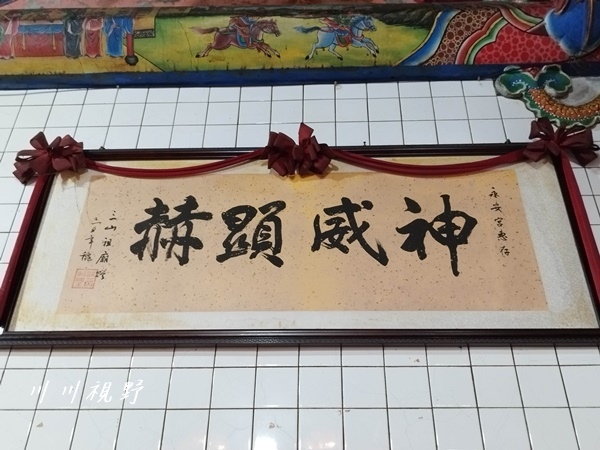 永安宮惠存
神威顯赫
三山祖廟贈
川川視野